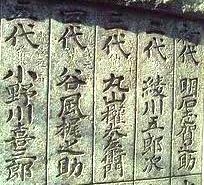 初代 明石志賀之助
二代 綾川五郎次
三代 丸山権太左衛門
四代 谷風梶之助
五代 小野川喜三郎